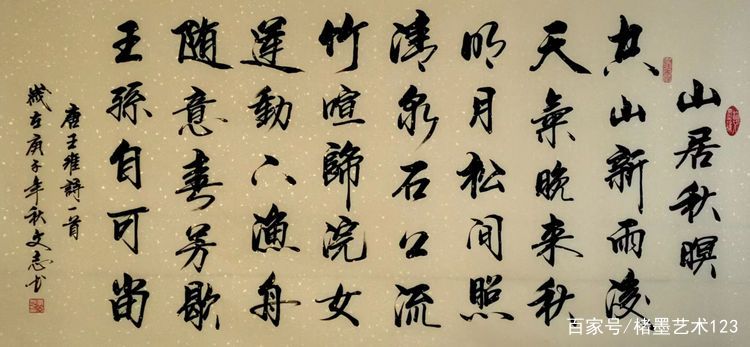 山居秋暝
空山新雨後
天氣晚来秋
明月松间照
清泉石上流
竹喧歸浣女
蓮動下漁舟
随意春芳歇
王孫自可留
唐王維詩一首
歲在庚子年秋文志书
百家号/楮墨艺术123